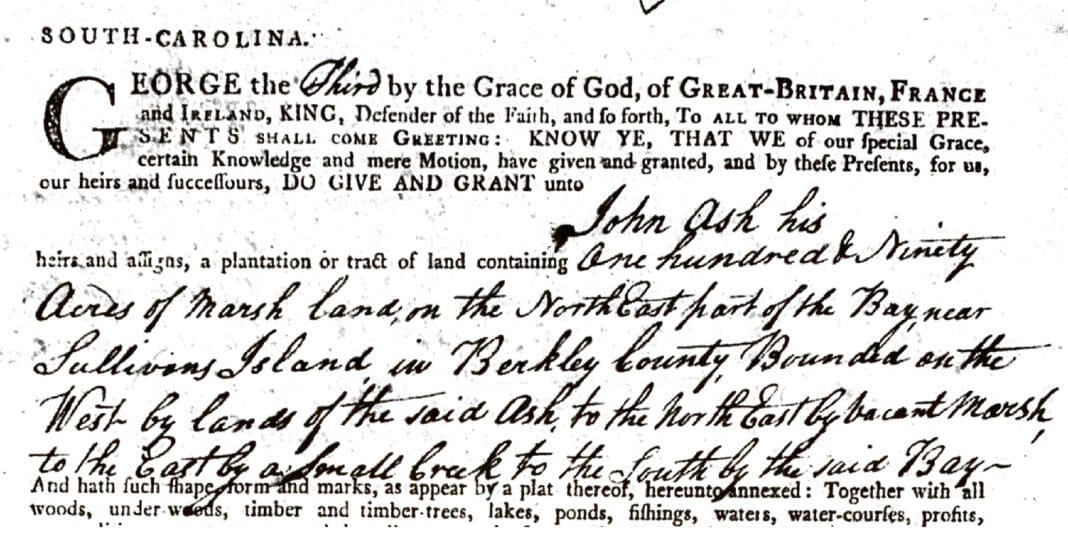 SOUTH-CAROLINA.
GEORGE the Third by the Grace of God, of GREAT-BRITAIN, FRANCE
and IRELAND, KING, Defender of the Faith, and ſo forth, To ALL TO WHOM THESE PRE-
SENTS SHALL COME GREETING: KNOW YE, THAT WE of our ſpecial Grace,
certain Knowledge and mere Motion, have given and granted, and by theſe Preſents, for us,
our heirs and ſucceſſours, DO GIVE AND GRANT unto
John Ash his
heirs and aſſigns, a plantation or tract of land containing One hundred & Ninety
Acres of Marsh land, on the North East part of the Bay, near
Sullivans Island, in Berkley County, Bounded on the
West by lands of the said Ash, to the North East by vacant Marsh,
to the East by a small Creek to the South by the said Bay~
And hath ſuch ſhape form and marks, as appear by a plat thereof, hereunto annexed: Together with all
woods, under-woods, timber and timber-trees, lakes, ponds, fiſhings, waters, water-courſes, profits,